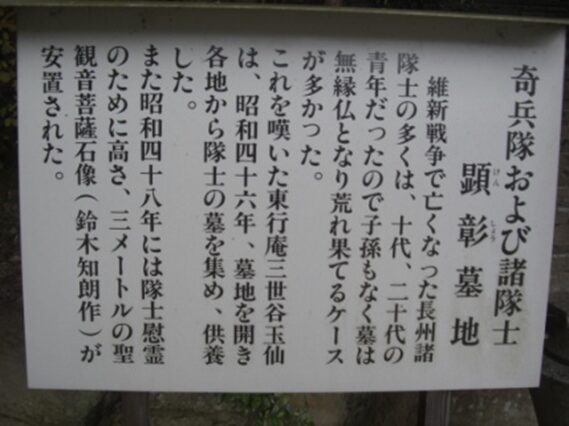 奇兵隊および諸隊士
顕彰墓地
けん しょう
維新戦争で亡くなった長州諸
隊士の多くは、十代、二十代の
青年だったので子孫もなく墓は
無縁仏となり荒れ果てるケース
が多かった。
これを嘆いた東行庵三世谷玉仙
は、昭和四十六年、墓地を開き
各地から隊士の墓を集め、供養
した。
また昭和四十八年には隊士慰霊
のために高さ、三メートルの聖
観音菩薩石像(鈴木知朗作)が
安置された。